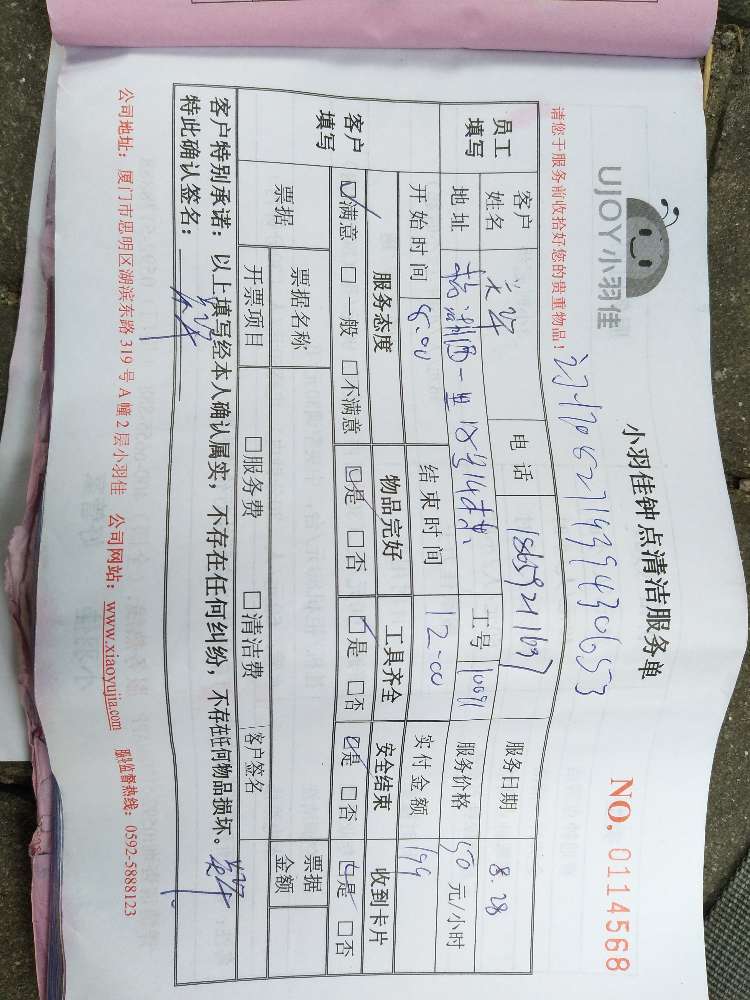 UJOY小羽佳
小羽佳钟点清洁服务单
NO. 0114568
请您于服务前收拾好您的贵重物品！
员工填写 客户姓名 电话 服务日期 8.28
地址 工号 服务价格 50 元/小时
开始时间 8:00 结束时间 12:00 实付金额 199
客户填写 服务态度 物品完好 工具齐全 安全结束 收到卡片
☑满意 □一般 □不满意 ☑是 □否 ☑是 □否 ☑是 □否 ☑是 □否
票据 票据名称 票据金额
开票项目 □服务费 □清洁费 客户签名
客户特别承诺：以上填写经本人确认属实，不存在任何纠纷，不存在任何物品损坏。
特此确认签名：
公司地址：厦门市思明区湖滨东路319号A幢2层小羽佳 公司网站：www.xiaoyujia.com 服务监督热线：0592-5888123